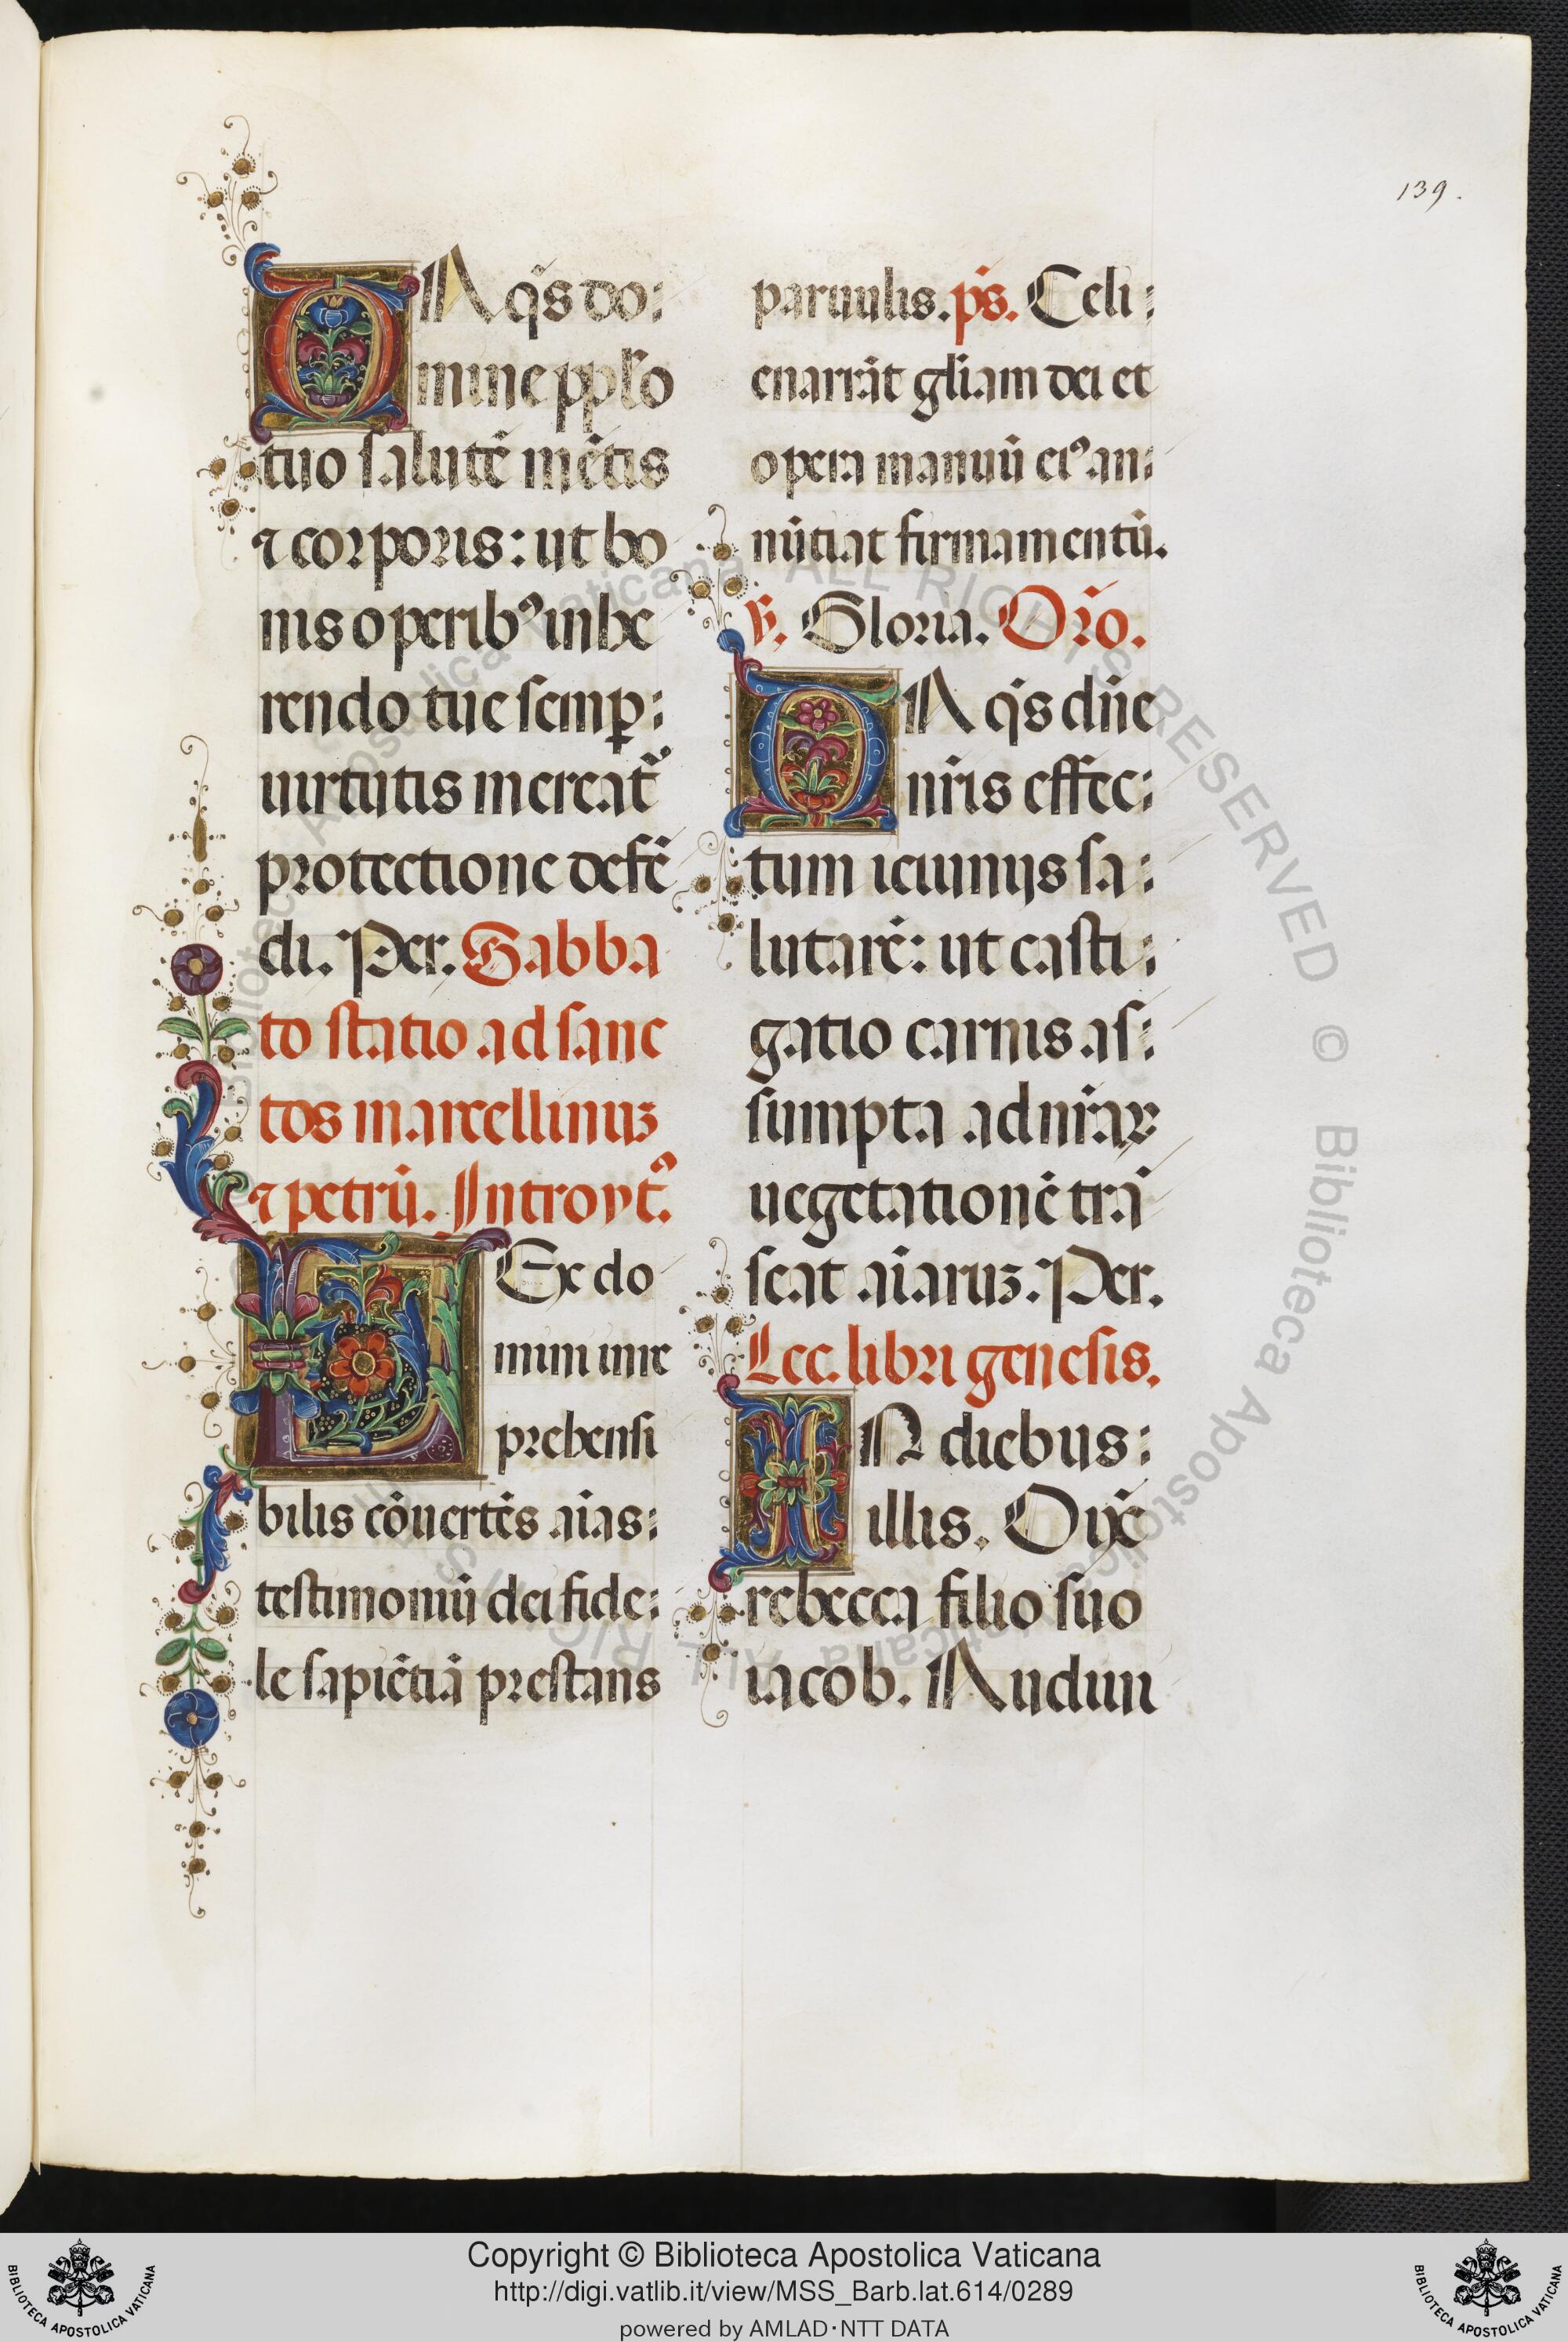 139.
DA q̃s do:
mine pplo
tuo salutẽ mẽtis
⁊ corporis: ut bo
nis operibꝰ inhe
rendo tue semꝑ:
uirtutis mereat᷑
protectione defẽ
di. Per. Sabba
to statio ad sanc
tos marcellinuꝫ
⁊ petrũ. Introytꝰ.
LEx do
mini irre
prehensi
bilis cõuertẽs aĩas:
testimoniũ dei fide:
le sapiẽtiã prestans
paruulis. p̃s. Celi:
enarrãt gl̃iam dei et
opera manuũ eiꝰ an:
nũtiat firmamentũ.
V. Gloria. Or̃o.
DA q̃s dñe
nr̃is effec:
tum ieiunijs sa:
lutarẽ: ut casti:
gatio carnis as:
sumpta ad nr̃aꝝ
uegetationẽ trã
seat aĩaruꝫ. Per.
Lec. libri genesis.
IN diebus:
illis. Dixẽ
rebecca filio suo
iacob. Audiui
Copyright © Biblioteca Apostolica Vaticana
http://digi.vatlib.it/view/MSS_Barb.lat.614/0289
powered by AMLAD·NTT DATA
BIBLIOTECA APOSTOLICA VATICANA
BIBLIOTECA APOSTOLICA VATICANA
© Biblioteca Apostolica Vaticana ALL RIGHTS RESERVED © Biblioteca Apostolica Vaticana ALL RIGHTS